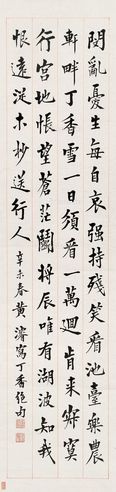 閔亂憂生每自哀強持殘笑看池臺樂農
軒畔丁香雪一日須看一萬迴肯來寂寞
行宮地悵望蒼茫鬭將辰唯有湖波知我
恨遠從木杪送行人 辛未春黃濬寫丁香絕句